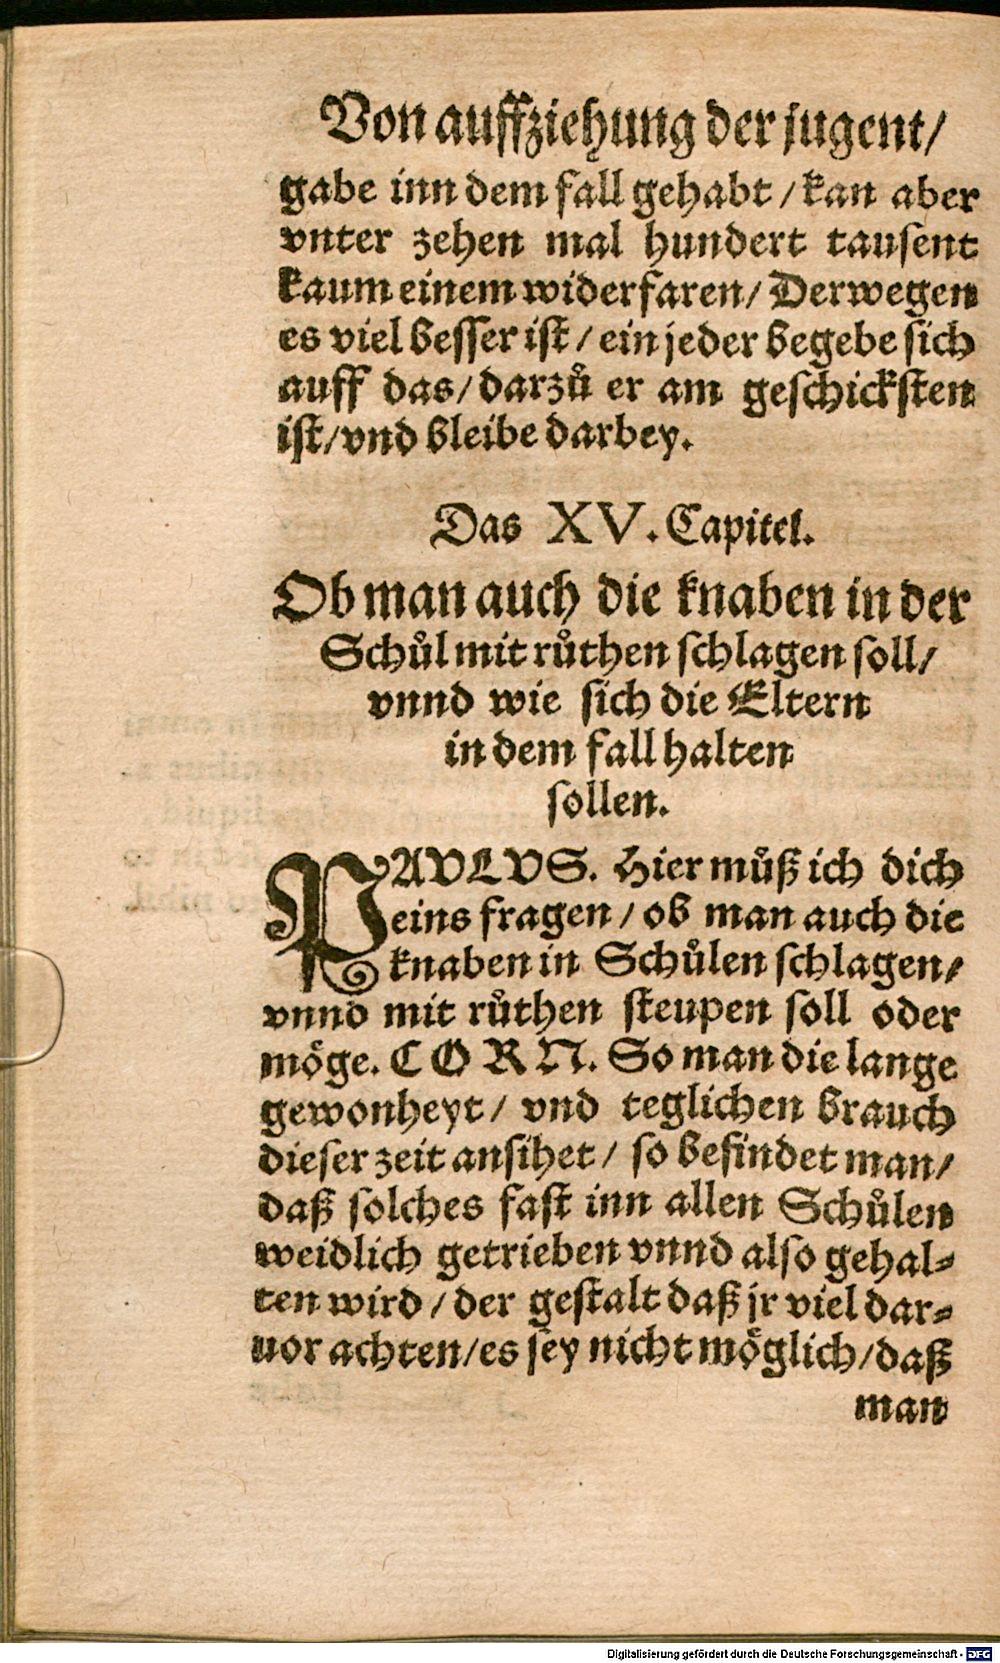 Von auffziehung der jugent/
gabe inn dem fall gehabt / kan aber
vnter zehen mal hundert tausent
kaum einem widerfaren/ Derwegen
es viel besser ist / ein jeder begebe sich
auff das/ darzuͦ er am geschicksten
ist/vnd bleibe darbey.
Das XV. Capitel.
Ob man auch die knaben in der
Schuͦl mit ruͦthen schlagen soll/
vnnd wie sich die Eltern
in dem fall halten
sollen.
PAVLVS. Hier muͦß ich dich
eins fragen / ob man auch die
knaben in Schuͦlen schlagen/
vnnd mit ruͦthen steupen soll oder
moͤge. CORN. So man die lange
gewonheyt / vnd teglichen brauch
dieser zeit ansihet / so befindet man/
daß solches fast inn allen Schuͦlen
weidlich getrieben vnnd also gehal⸗
ten wird / der gestalt daß jr viel dar⸗
uor achten/es sey nicht moͤglich/daß
man
Digitalisierung gefördert durch die Deutsche Forschungsgemeinschaft - DFG